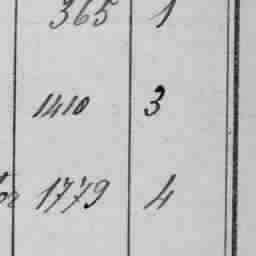 365 1
1410 3
1779 4